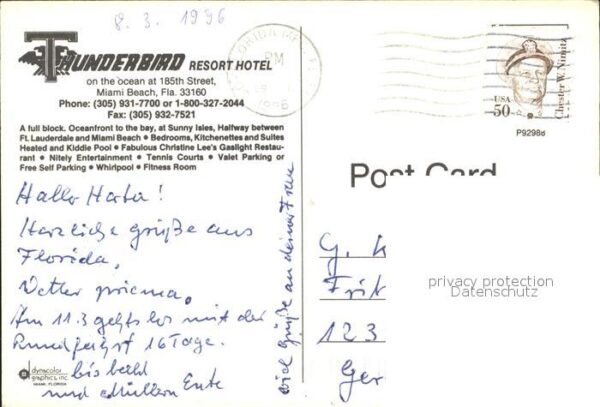 8. 3. 1996
THUNDERBIRD RESORT HOTEL
on the ocean at 185th Street,
Miami Beach, Fla. 33160
Phone: (305) 931-7700 or 1-800-327-2044
Fax: (305) 932-7521
A full block. Oceanfront to the bay, at Sunny Isles, Halfway between
Ft. Lauderdale and Miami Beach • Bedrooms, Kitchenettes and Suites
Heated and Kiddie Pool • Fabulous Christine Lee's Gaslight Restau-
rant • Nitely Entertainment • Tennis Courts • Valet Parking or
Free Self Parking • Whirlpool • Fitness Room
Hallo
Herzliche Grüße aus
Florida.
Wetter prima.
Am 11.3 gehts los mit der
Rundfahrt 16 Tage.
bis bald
und
viel Grüße an deine Frau
dynacolor
graphics, inc.
MIAMI, FLORIDA
PM
1996
USA
50
Chester W. Nimitz
P9298d
Post Card
G. K
123
Ger
privacy protection
Datenschutz